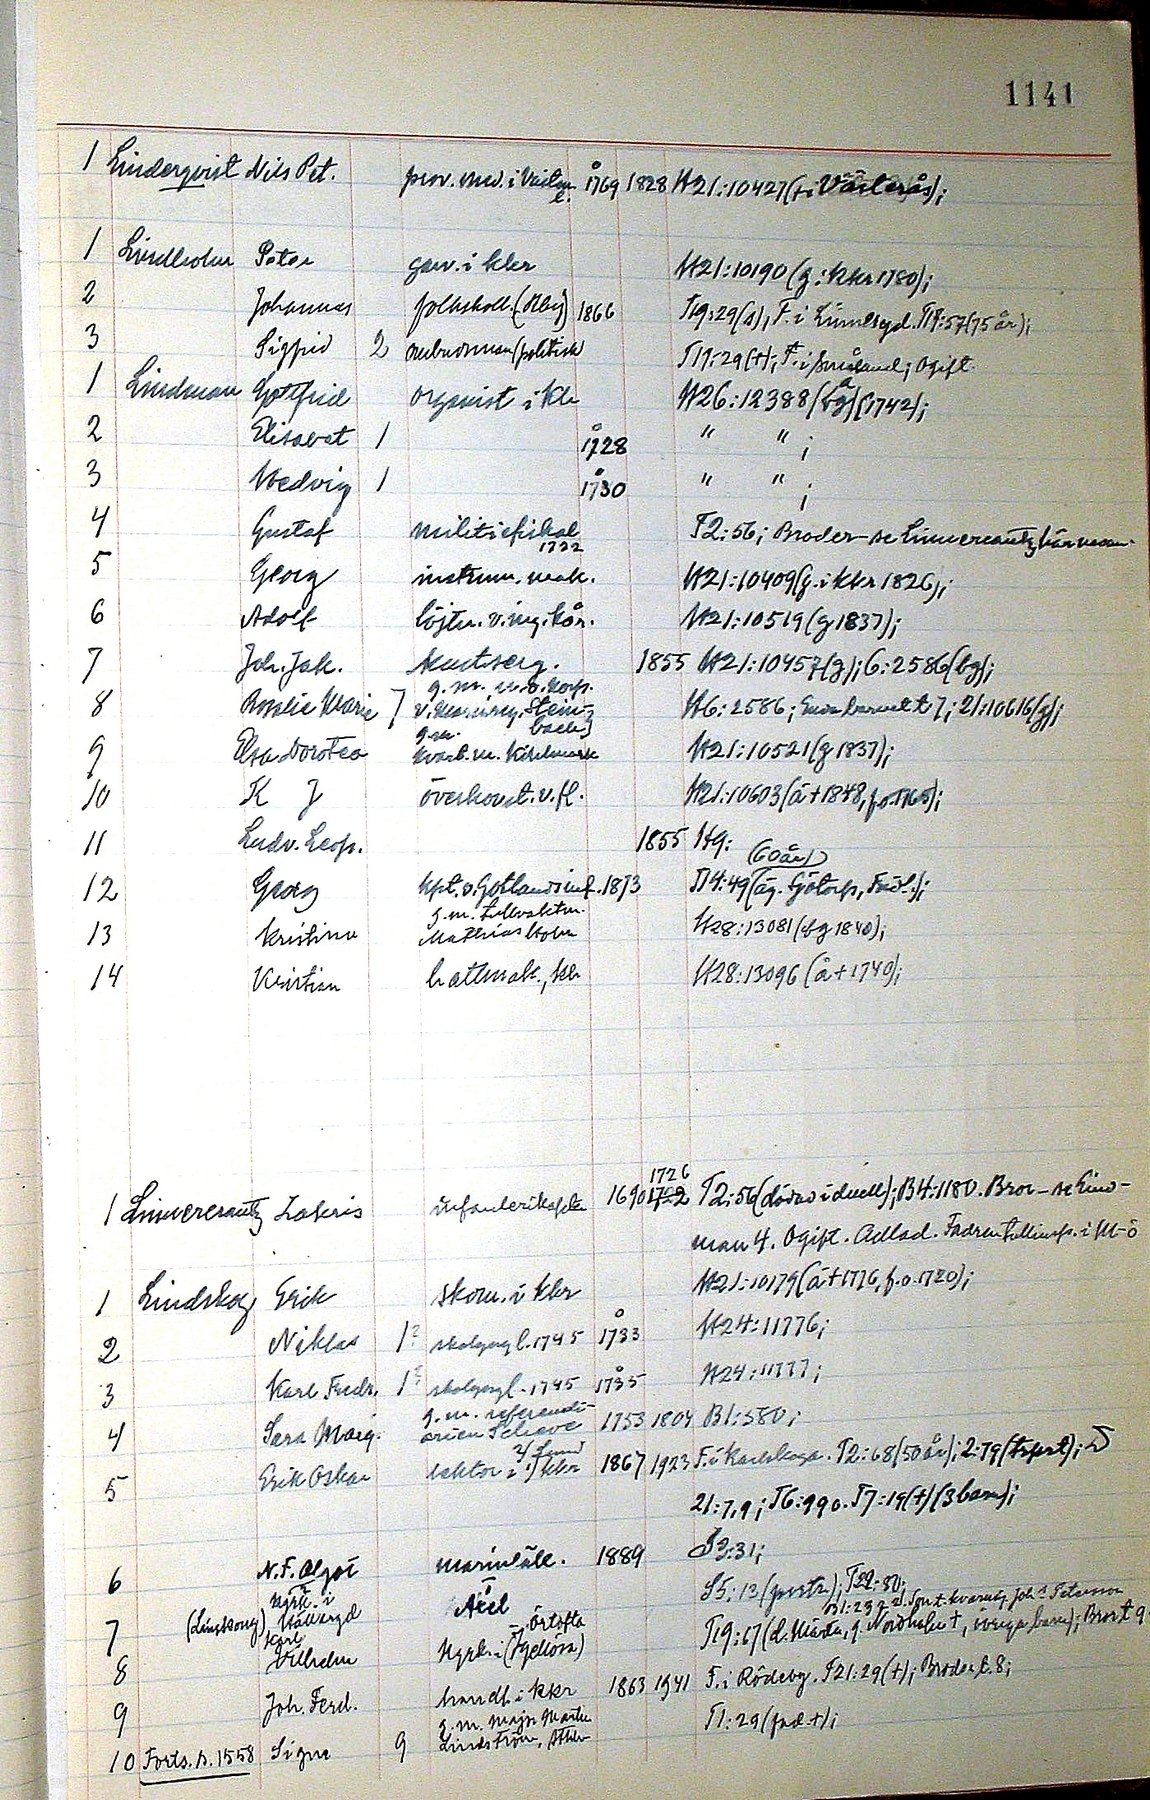 1141
1 Linderqvist Nils Pet. prov. med. i Västm. l. å 1769 1828 H21:10427 (+ i Västerås);
1 Lindholm Peter garv. i kkr H21:10190 (g: kkr 1780);
2 Johannes folkskoll. 1866 T19:29(a), F. i Linnelsyd. T19:57 (75 år);
3 Sigfrid 2 ombudsman (politisk T19:29(+); F. i Småland; ogift
1 Lindman Gottfrid organist i kkr H26:12388 (bg) (å 1742);
2 Elisabet 1 å 1728 " " ;
3 Hedvig 1 å 1730 " " ;
4 Gustaf militiefiskal 1722 T2:56; Broder - se Linnercrantz här nedan.
5 Georg instrum. mak. H21:10409 (g. i kkr 1826);
6 Adolf löjtn. v. ing. kår. H21:10519 (g 1837);
7 Joh. Jak. 1855 H21:10457 (g); 6:2586 (bg);
8 Rosalie Marie 7 g. m. u. o. korp. v. Stein- bach H6:2586; Enda barnet t 7; 21:10616 (g);
9 Elsa Dorotea g. m. H21:10521 (g 1837);
10 K J överkonst. v. fl. H21:10603 (å + 1848, f. o. 1765);
11 Ludv. Leop. 1855 H9:
(60 år)
12 Georg kpt. v. Gotlands inf. 1873 T14:49 (äg. Götorp, Fäd.);
13 Kristina g. m. tullvaktm. Mathias Holm H28:13081 (bg 1840);
14 Kristian hattmak., kkr H28:13096 (å + 1740);
1 Linnercrantz Zakris infanterikapten 1690 1726 T2:56 (dödad i duell); B4:1180. Bror - se Lind-
man 4. Ogift. Adlad. Fadren tullinsp. i M-ö
1 Lindskog Erik skom. i kkr H21:10179 (å + 1776, f. o. 1720);
2 Niklas 1? skolyngl. 1745 å 1733 H24:11776;
3 Karl Fredr. 1? skolyngl. 1745 å 1735 H24:11777;
4 Sara Marg. g. m. referendi- arien Scheve 1753 1804 B1:580;
5 Erik Oskar lektor i 1) kkr 2) Lund 1867 1923 F. i Karlskoga. T2:68 (50 år); 2:79 (tsprt);
21:7,9; T6:990. T7:19 (+) (3 barn);
6 N. F. Algot marinläk. 1889 T3:31;
S5:13 (portr.); T22:80;
7 (Lingskoug) Karl Axel
8 Vilhelm Kyrkh. i (Örtofta Gellösa) T19:67
9 Joh. Ferd. handl. i kkr 1863 1941 F. i Rödeby. T21:29 (+); Broder t. 8;
10 Forts. s. 1558 Signe 9 g. m. major Martin Lindström, Sthlm T1:29 (fad. +);